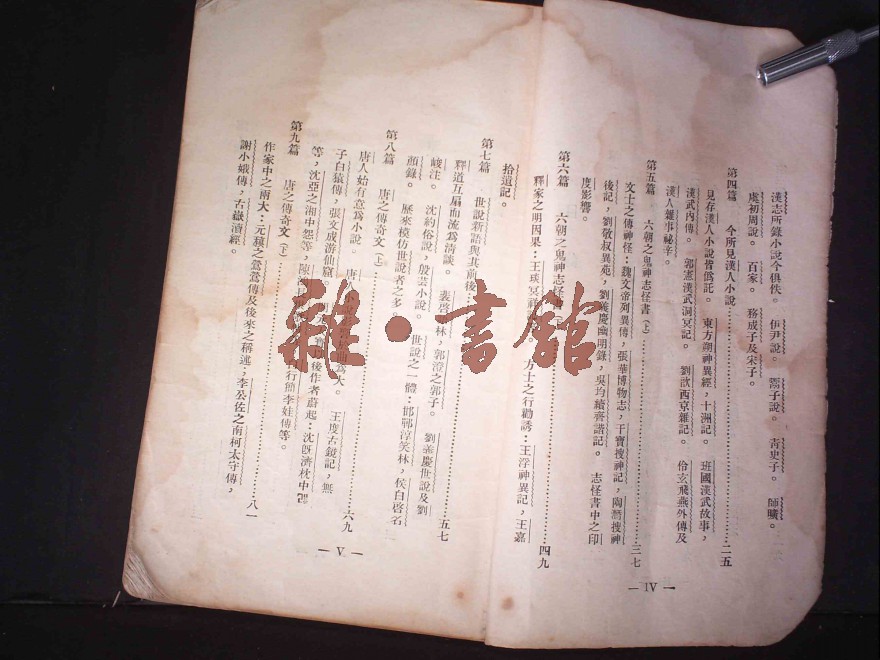 漢志所錄小說今俱佚。 伊尹說。 鬻子說。 青史子。 師曠。
虞初周說。 百家。 務成子及宋子。
第四篇 今所見漢人小說……二五
見存漢人小說皆僞託。 東方朔神異經，十洲記。 班固漢武故事，
漢武內傳。 郭憲漢武洞冥記。 劉歆西京雜記。 伶玄飛燕外傳及
漢人雜事祕辛。
第五篇 六朝之鬼神志怪書（上）……三七
文士之傳神怪：魏文帝列異傳，張華博物志，干寶搜神記，陶潛搜神
後記，劉敬叔異苑，劉義慶幽明錄，吳均續齊諧記。 志怪書中之印
度影響。
第六篇 六朝之鬼神志怪書（下）……四九
釋家之明因果：王琰冥祥 方士之行勸誘：王浮神異記，王嘉
拾遺記。
— IV —
第七篇 世說新語與其前後……五七
釋道互扇而流爲清談。 裴啓 林，郭澄之郭子。 劉義慶世說及劉
峻注。 沈約俗說，殷芸小說。 世說之一體：邯鄲淳笑林，侯白啓
顏錄。 歷來模仿世說者之多。
第八篇 唐之傳奇文（上）……六九
唐人始有意爲小說。 唐 爲大。 王度古鏡記，無
子白猿傳，張文成游仙窟 以後作者蔚起：沈旣濟枕中記
等，沈亞之湘中怨等，陳 白行簡李娃傳等。
第九篇 唐之傳奇文（下）……八一
作家中之兩大：元稹之鶯鶯傳及後來之稱述，李公佐之南柯太守傳，
謝小娥傳，古嶽瀆經。
— V —
雜·書館